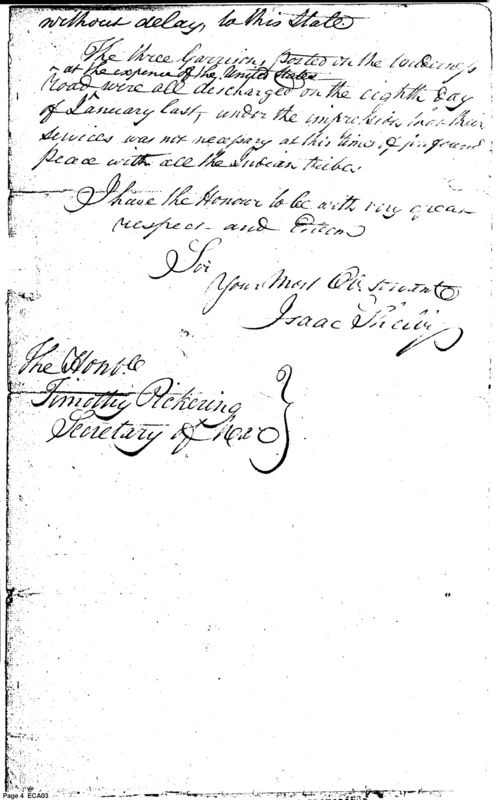 without delay, to this State
The three Garrisons posted on the wilderness
at the expence of the United States
road were all discharged on the eighth Day
of January last, under the impression that their
services was not necessary at this time of profound
Peace with all the Indian tribes
I have the Honour to be with very great
respect and Esteem
Sir
Your Most Ob. Servant
Isaac Shelby
The Honble
Timothy Pickering
Secretary of War
Page 4 ECA03